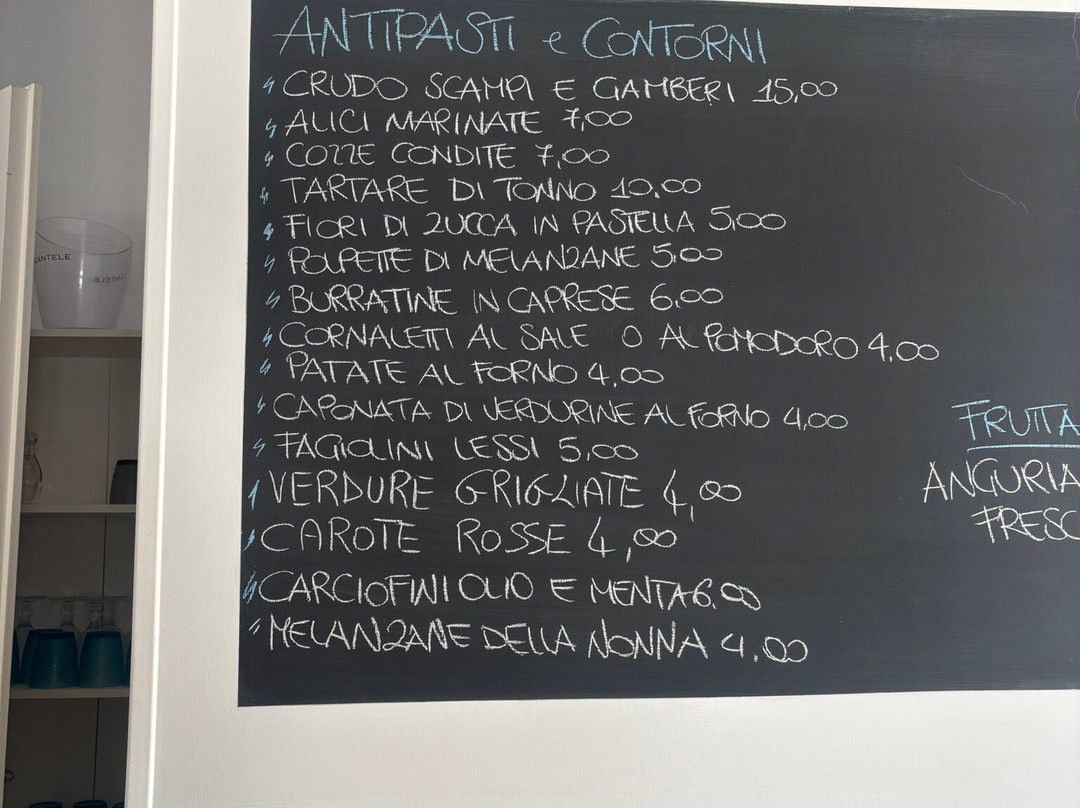 ANTIPASTI e CONTORNI
CRUDO SCAMPI E GAMBERI 15,00
ALICI MARINATE 7,00
COZZE CONDITE 7,00
TARTARE DI TONNO 10.00
FIORI DI ZUCCA IN PASTELLA 5,00
POLPETTE DI MELANZANE 5.00
BURRATINE IN CAPRESE 6.00
CORNALETTI AL SALE O AL POMODORO 4,00
PATATE AL FORNO 4,00
CAPONATA DI VERDURINE AL FORNO 4.00
FAGIOLINI LESSI 5,00
VERDURE GRIGLIATE 4,00
CAROTE ROSSE 4,00
CARCIOFINI OLIO E MENTA 6.00
MELANZANE DELLA NONNA 4.00
FRUTTA
ANGURIA
FRESC
CANTELE
CANTELE